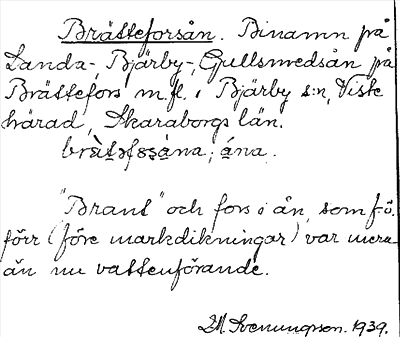 Brätteforsån. Binamn på
Landa-, Bjärby-, Gullsmedsån på
Brättefors m.fl. i Bjärby s:n, Viste
härad, Skaraborgs län.
ána.
"Brant" och fors i ån, som f.ö.
förr (före markdikningar) var mera
än nu vattenförande.
Svenungsson. 1939.